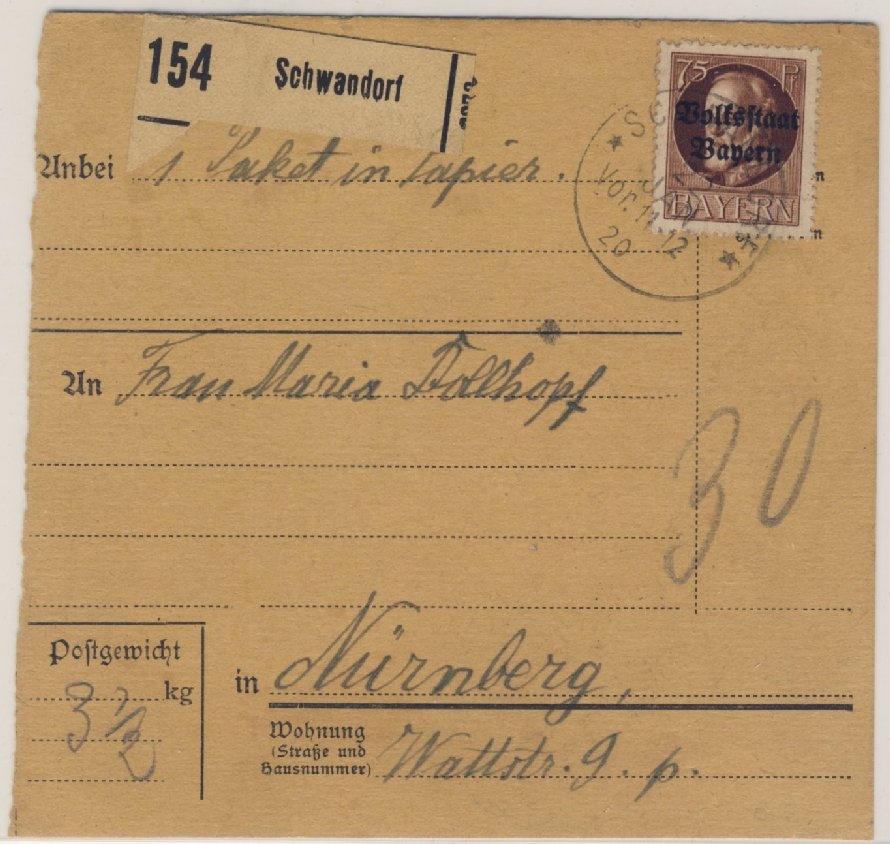 154 Schwandorf
75 Pf
Volksstaat
Bayern
BAYERN
JAN
Vor. 11-12
20
Anbei 1 Paket in Papier.
An Frau Maria Dollhopf
30
Postgewicht
3 1/2 kg
in Nürnberg,
Wohnung
(Straße und
Hausnummer) Wattstr. 9. p.